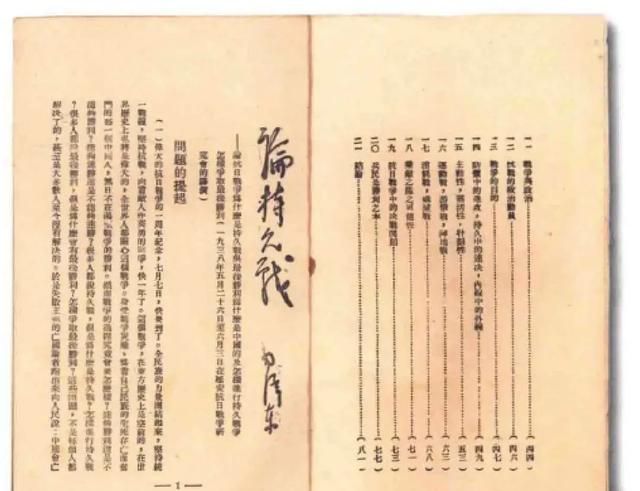 一一 戰爭與政治……(四四)
一二 抗戰的政治動員……(四六)
一三 戰爭的目的……(四七)
一四 防禦中的進攻,持久中的速決,內線中的外線……(四九)
一五 主動性,靈活性,計劃性……(五三)
一六 運動戰,游擊戰,陣地戰……(六三)
一七 消耗戰,殲滅戰……(六八)
一八 乘敵之隙的可能性……(七一)
一九 抗日戰爭中的決戰問題……(七三)
二〇 兵民是勝利之本……(七七)
二一 結論……(八一)
論持久戰 毛澤東
——論抗日戰爭爲什麼是持久戰與最後勝利爲什麼是中國的及怎樣進行持久戰與
怎樣爭取最後勝利(一九三八年五月二十六日至六月三日在延安抗日戰爭研
究會的講演)
問題的提起
(一)偉大的抗日戰爭的一周年紀念,七月七日,快要到了。全民族的力量團結起來,堅持抗
一戰線,堅持抗戰,向着敵人作英勇的戰爭,快一年了。這個戰爭,在東方歷史上是空前的,在世
界歷史上也將是偉大的,全世界人都關心這個戰爭。身受戰爭災難,爲着自己民族的生死存亡而奮
鬥的每一個中國人,無日不在渴望戰爭的勝利。然而戰爭的過程究竟會要怎麼樣?能夠勝利還是不
能夠勝利?能夠速勝還是不能夠速勝?很多人都說持久戰,但是爲什麼是持久戰?怎樣進行持久戰
?很多人都說最後勝利,但是爲什麼會有最後勝利?怎樣爭取最後勝利?這些問題,不是每個人都
解決了的,甚至是大多數人至今沒有解決的。於是失敗主義的亡國論者跑出來向人民說:中國會亡
— 1 —